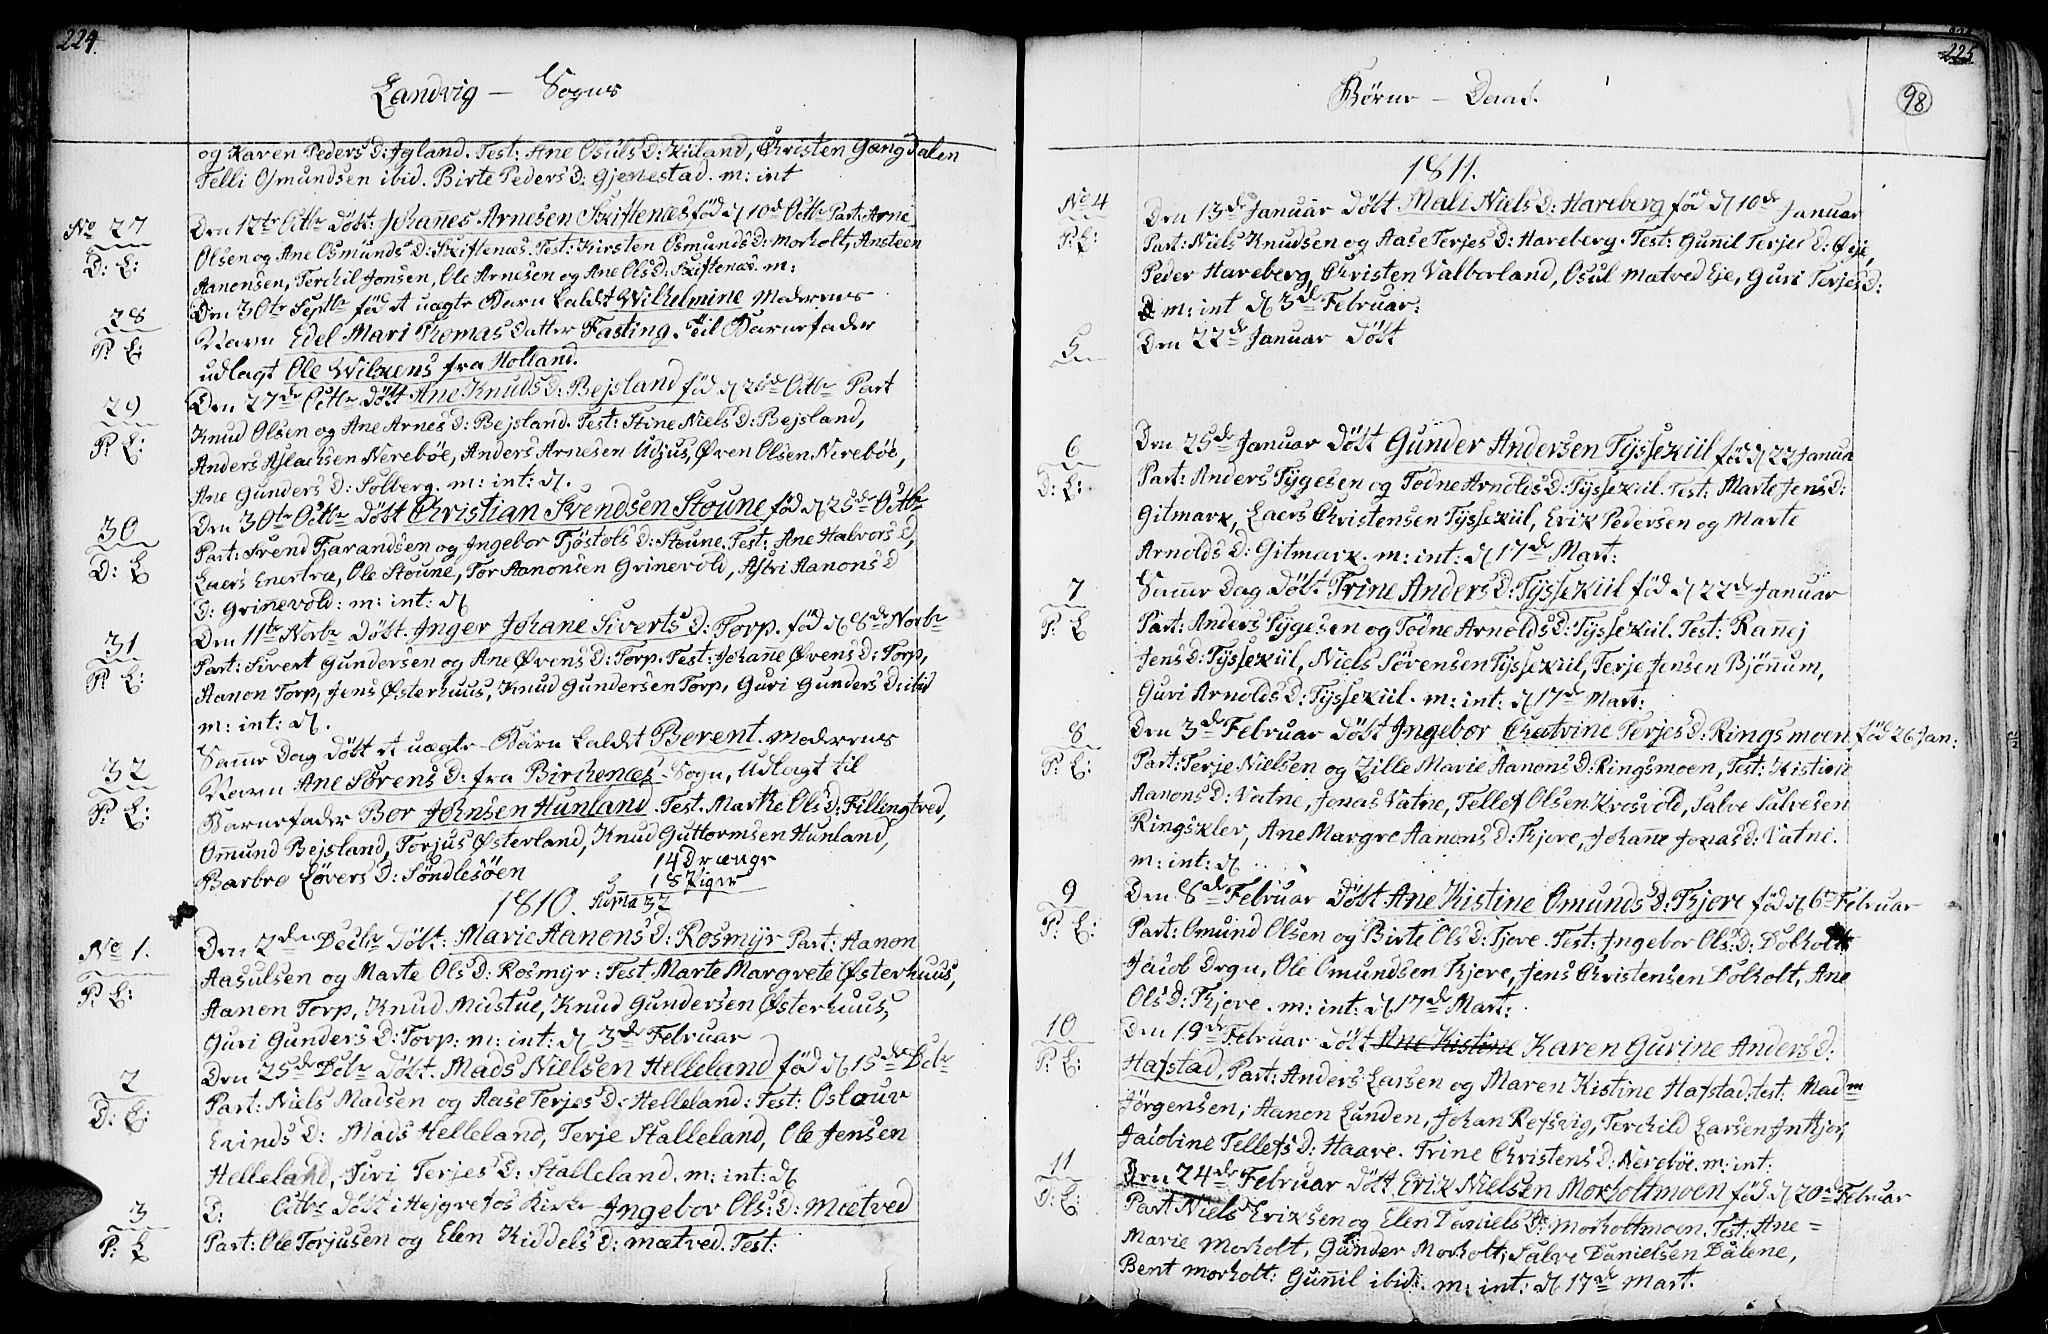 224.
Landvig — Sogns
og Karen Peders D: Igland. Test: Ane Osuls D: Kiiland, Christen Gangdalen
Telli Osmundsen ibid. Birte Peders D: Gjenestad. m: int
No 27 Den 12te Octbr døbt: Johannes Arnesen Skiftenæs fød d 10d Octbr Part: Arne
D: E: Olsen og Ane Osmunds D: Skiftenæs. Test: Kirsten Osmunds D: Morholt, Ansteen
Aanonsen, Terchil Jonsen, Ole Arnesen og Ane Ols D: Skiftenæs. m:
28 Den 30te Septbr fød et uægte Barn kaldet Wilhelmine Moderens
P: E: Navn Edel Mari Thomas Datter Fasting. Til Barnefader
udlagt Ole Wilkens fra Holland.
29 Den 27de Octbr døbt Ane Knuds D: Bejsland fød d 26d Octbr Part
P: E: Knud Olsen og Ane Arnes D: Bejsland. Test: Stine Niels D: Bejsland,
Anders Aslachsen Nerebøe, Anders Arnesen Udjus, Øven Olsen Nerebøe,
Ane Gunders D: Solberg. m: int: d.
30 Den 30te Octbr døbt Christian Svendsen Stoune fød d 25de Octbr
D: E Part: Svend Tjarandsen og Ingebor Tjøstols D: Stoune. Test: Ane Halvors D,
Laers Enertræ, Ole Stoune, Tor Aanonsen Grinevold, Astri Aanons D
D: Grinnevold: m: int: d
31 Den 11te Novbr døbt. Inger Johane Siverts D: Torp. fød d 8de Novbr
P: E: Part: Sivert Gundersen og Ane Øvens D: Torp. Test: Johanne Øvens D: Torp,
Aanon Torp, Jens Østerhuus, Knud Gundersen Torp, Guri Gunders D: ibid
m: int: d.
32 Samme Dag døbt et uægte Barn kaldet Berent. Moderens
P: E: Navn Ane Sørens D: fra Birchenæs Sogn, Udlagt til
Barnefader Bor Johnsen Hunland. Test. Marthe Ols D: Fillingtved,
Ommund Bejsland, Torjus Østerland, Knud Guttormsen Hunland,
Barbro Løvers D: Søndlesöen 14 Drænge
18 Piger
1810. Summa 32
No 1. Den 2den Decbr døbt: Marie Aanons D: Rosmyr Part: Aanon
P: E: Aasulsen og Marte Ols D: Rosmyr: Test Marte Margrete Østerhuus,
Aanon Torp, Knud Midstue, Knud Gundersen Østerhuus,
Guri Gunders D: Torp: m: int: d 3de Februar
2 Den 25de Decbr døbt. Mads Nielsen Helleland fød d 15de Decbr
D: E: Part: Niels Madsen og Aase Terjes D: Helleland: Test: Oslouv
Evinds D: Mads Helleland, Terje Stalleland, Ole Jensen
Helleland, Siri Terjes D: Stalleland. m: int: d
3 D: Octbr døbt i Hejgrefos Kirke Ingebor Ols: D: Mætved
P: E Part: Ole Torjusen og Elen Kiddels D: mætved. Test:
225
98
Børne — Daab.
1811.
No 4 Den 13de Januar døbt Mali Niels D: Hareberg fød d 10de Januar
P: E: Part: Niels Knudsen og Aase Terjes D: Hareberg. Test: Gunil Terjes D: Øye,
Peder Hareberg, Christen Valborland, Osul Mætved Eje, Guri Terjes D:
m: int d 3de Februar:
5 Den 22de Januar døbt
6 Den 25de Januar døbt Gunder Andersen Tyssekiil fød d 22 Janua
D: E: Part: Anders Tygesen og Todne Arnolds D: Tyssekiil. Test: Marte Jens D:
Gitmark, Laers Christensen Tyssekiil, Erik Pedersen og Marte
Arnolds D: Gitmark. m: int: d 17de Mart:
7 Samme Dag døbt Trine Anders D: Tyssekiil fød d 22de Januar
P: E Part: Anders Tygesen og Todne Arnolds D: Tyssekiil. Test: Rannej
Jens D: Tyssekiil, Niels Sørensen Tyssekiil, Terje Jensen Bjønnum,
Guri Arnolds D: Tyssekiil. m: int: d 17de Mart:
8 Den 3de Februar døbt Ingebor Chatrine Terjes D: Ringsmoen fød 26 Jan:
P: E: Part: Terje Nielsen og Zille Marie Aanons D: Ringsmoen, Test: Kistien
Aanons D: Vatne, Jonas Vatne, Tellef Olsen Krosvold, Salve Salvesen
Ringskler, Ane Margre Aanons D: Kjore, Johanne Jonas D: Vatne.
m: int: d
9 Den 8de Februar døbt Ane Kistine Omunds D: Kjore fød d 6te Februar
P: E: Part: Omund Olsen og Birte Ols D: Tjore. Test: Ingebor Ols: D: Dolholt
Jacob Drgn, Ole Omundsen Kjore, Jens Christensen Dolholt, Ane
Ols D: Kjore. m: int: d 17de Mart:
10 Den 19de Februar døbt Ane Kistine Karen Gurine Anders D:
P: E: Hafstad, Part: Anders Larsen og Maren Kistine Hafstad: test: Madm
Jörgensen; Aanon Lunden, Johan Refsvig, Terchild Larsen Inkjor,
Jacobine Tellefs D: Haave. Trine Christens D: Nerebøe. m: int:
11 Den 24de Februar døbt Erik Nielsen Morholtmoen fød d 20de Februar
D: E: Part Niels Eriksen og Elen Daniels D: Morholtmoen. Test: Ane =
Marie Morholt, Gunder Morholt, Salve Danielsen Dalene,
Bent morholt: Gunnil ibid: m: int: d 17de Mart.